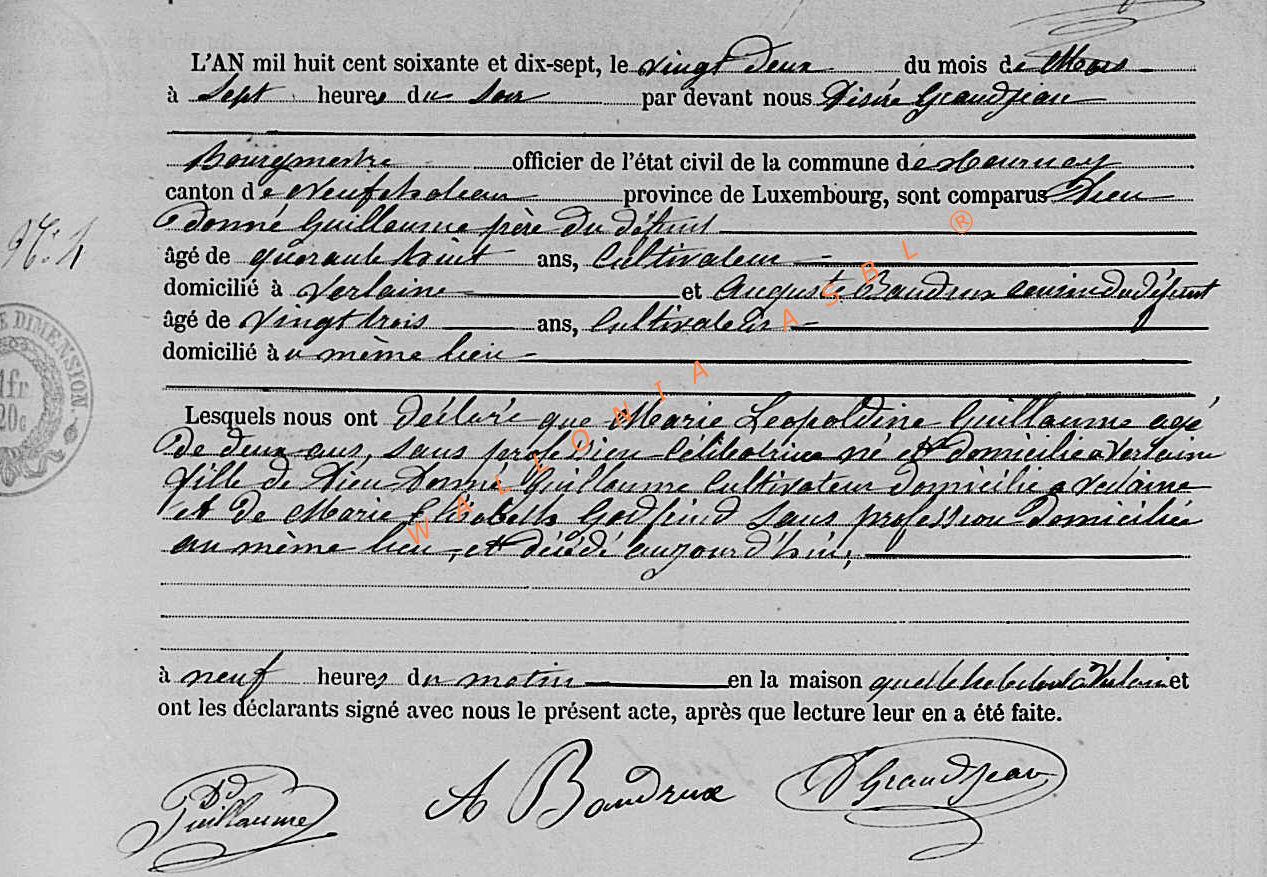 L'AN mil huit cent soixante et dix-sept, le vingt deux du mois de Mars
à Sept heures du Soir par devant nous Désiré Grandjean
Bourgmestre officier de l'état civil de la commune de Tournay
canton de Neufchateau province de Luxembourg, sont comparus Dieu
donné Guillaume père du défunt
N°. 4
âgé de quarante huit ans, Cultivateur
domicilié à Verlaine et Auguste Baudrux cousin du défunt
âgé de vingt trois ans, Cultivateur
domicilié au même lieu
E DIMENSION.
1fr
20c
Lesquels nous ont déclaré que Marie Leopoldine Guillaume agé
de deux ans, sans profession Célibatrice né et domicilié a Verlaine
fille de Dieu Donné Guillaume Cultivateur domicilié a Verlaine
et de Marie Elisabeth Godfrind Sans profession domiciliée
au même lieu, et décédé aujourd'hui,
à neuf heures du matin en la maison quelle habitait à Verlaine et
ont les déclarants signé avec nous le présent acte, après que lecture leur en a été faite.
Dd Guillaume A Baudrux D Grandjean
WALLONIA ASBL ®